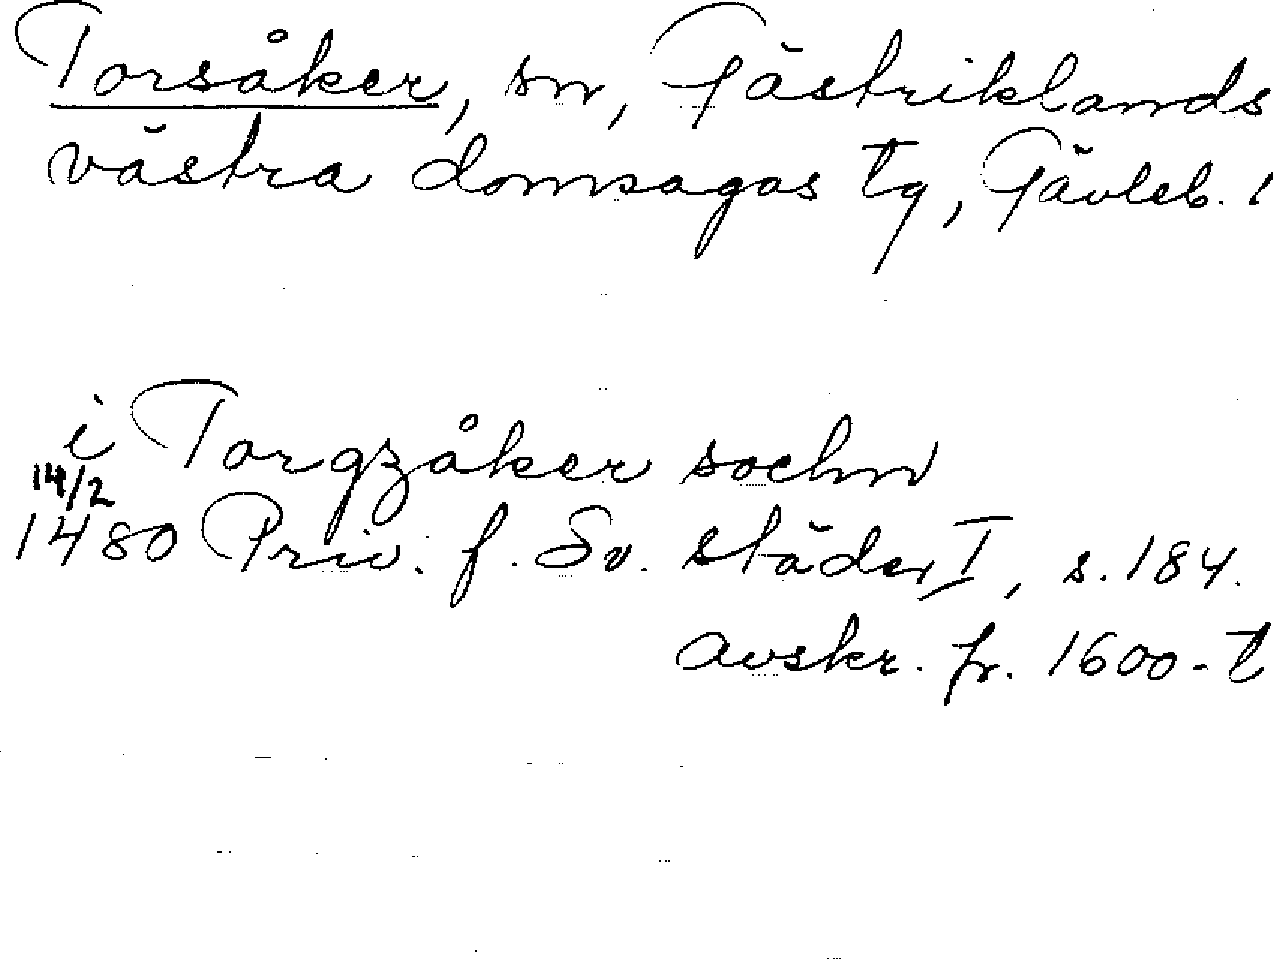 Torsåker, sn, Gästriklands
västra domsagas tg, Gävleb. l
i Torgzåker sochn
14/2
1480 Priv. f. Sv. städer I, s. 184.
avskr. fr. 1600-t